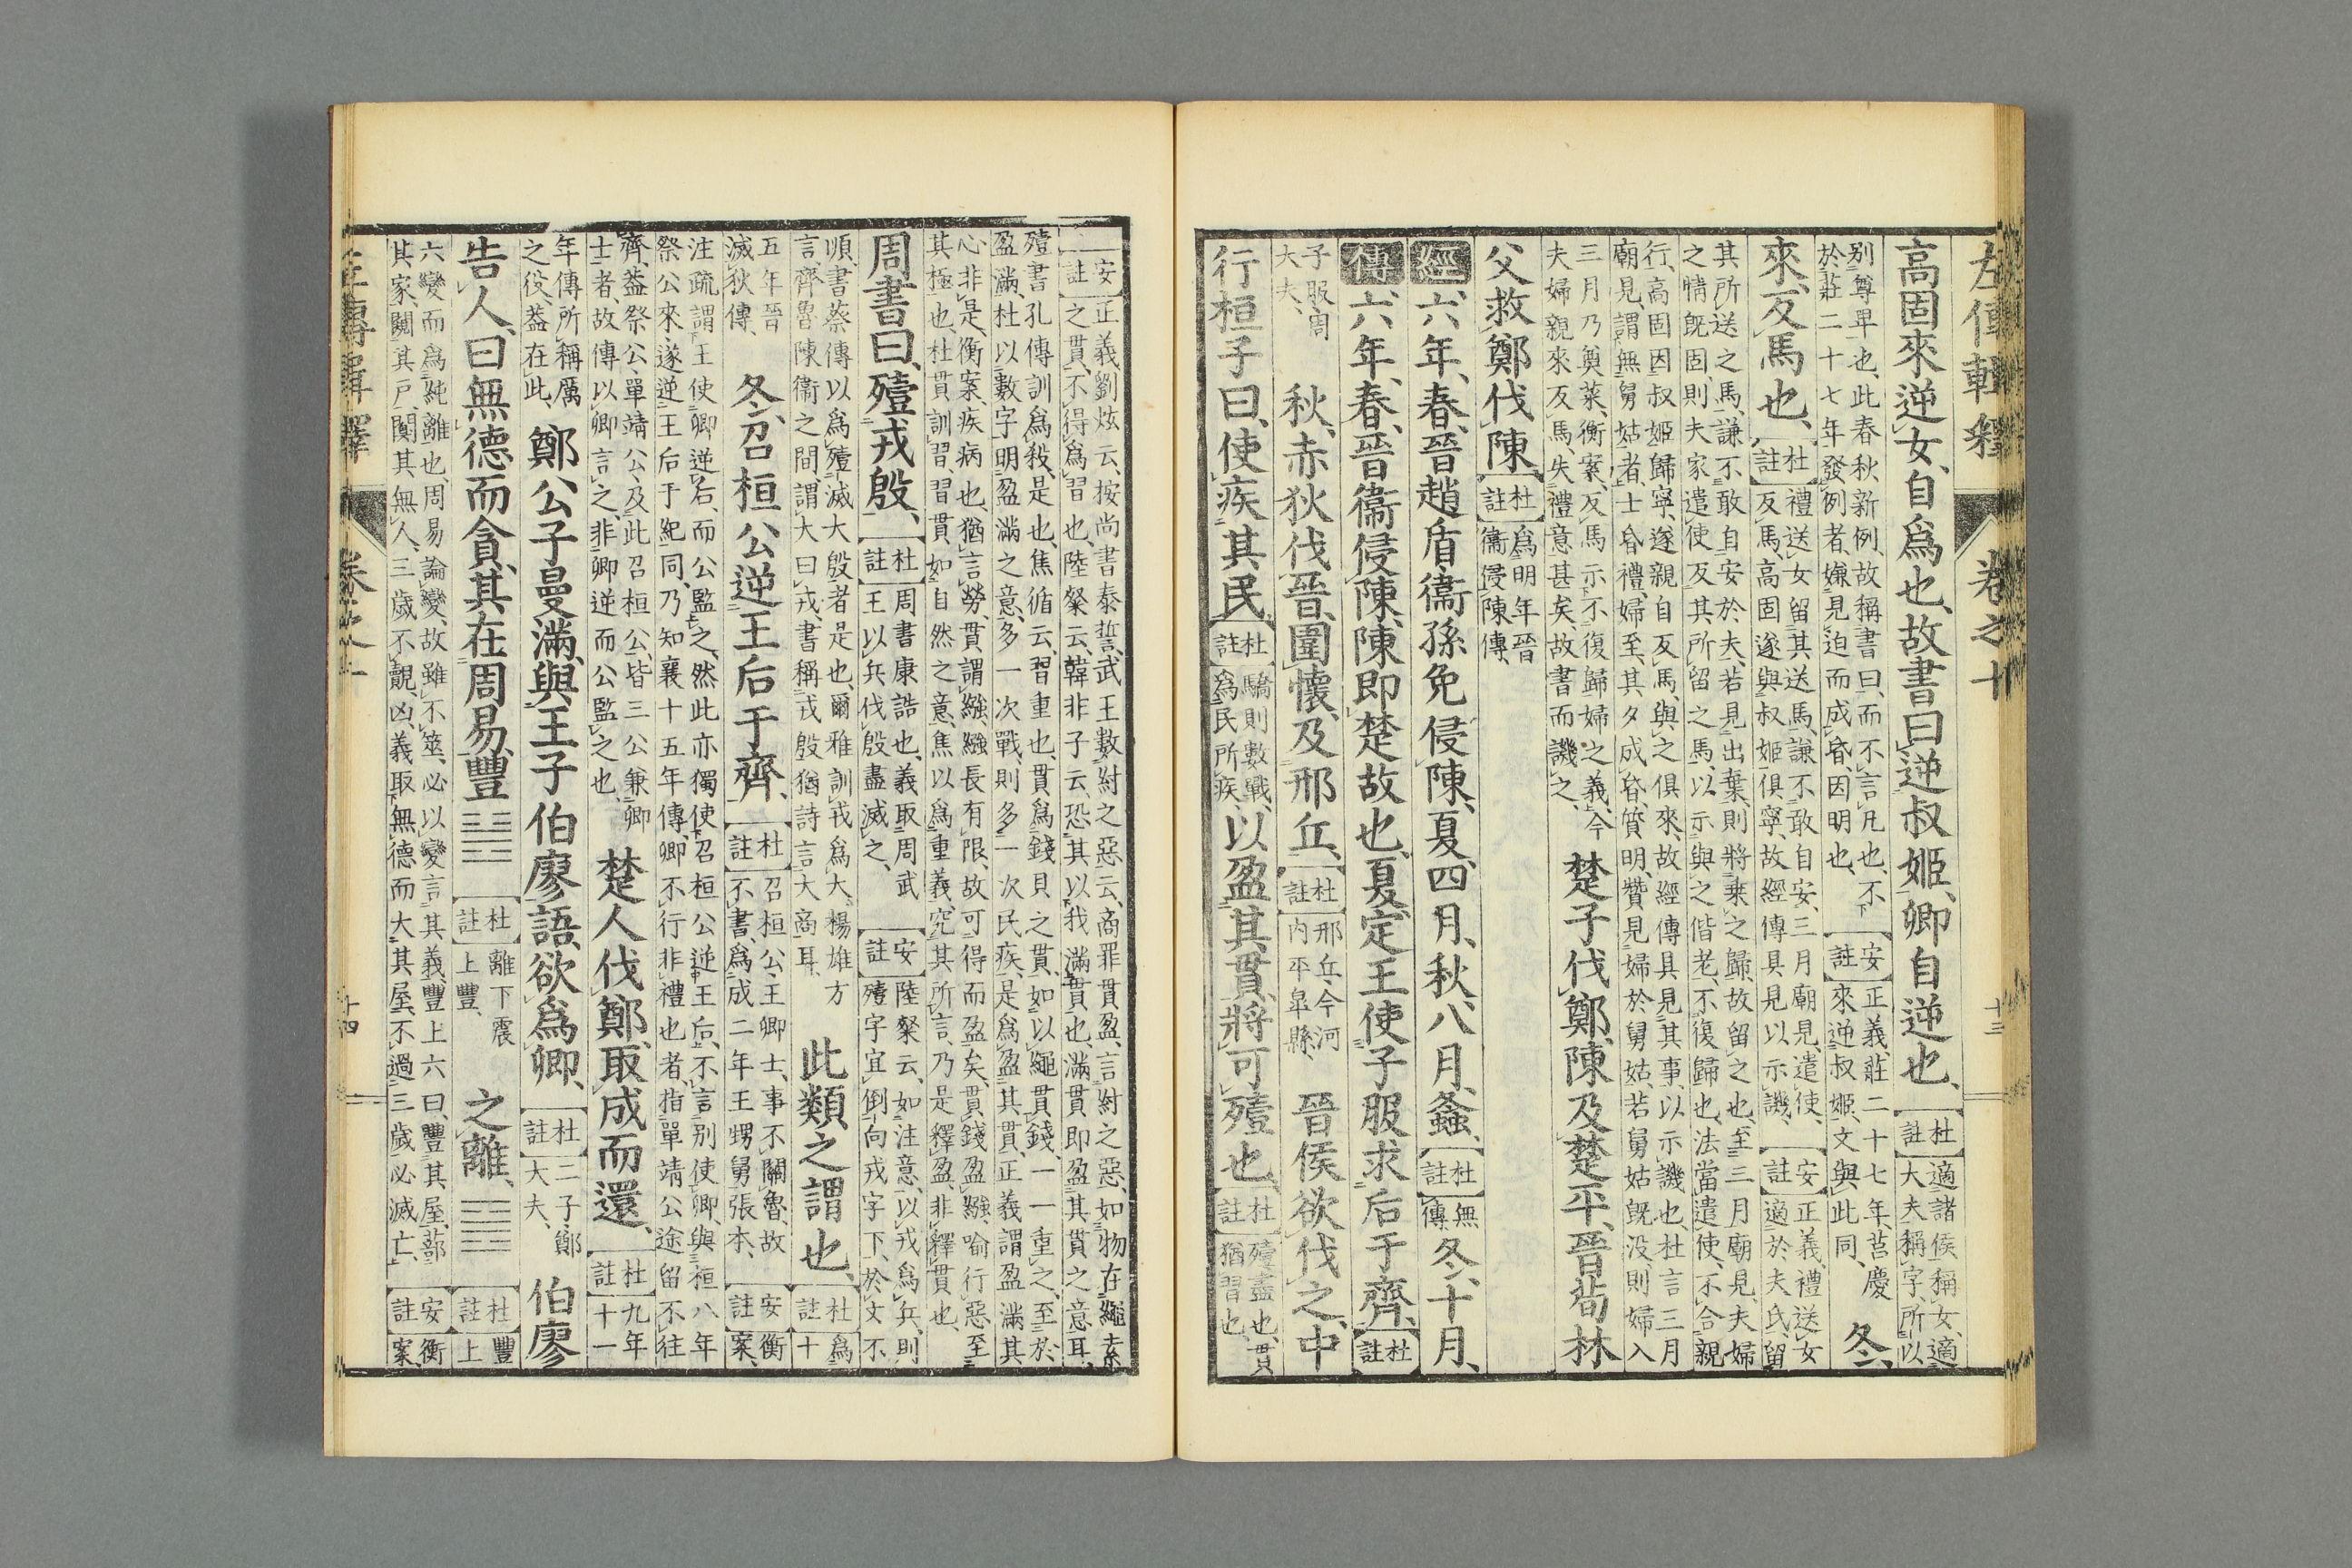 左傳輯釋 卷之十 十三
高固來逆女、自爲也、故書曰逆叔姬、卿自逆也、杜註 適諸侯稱女、適大夫稱字、所以
别尊卑也、此春秋新例、故稱書曰、而不言凡也、不於莊二十七年發例者、嫌見迫而成昏、因明也、安註 正義、莊二十七年、莒慶來逆叔姬、文與此同、冬、
來、反馬也、杜註 禮送女留其送馬、謙不敢自安、三月廟見、遣使反馬、高固遂與叔姬俱寧、故經傳具見以示譏、安註 正義、禮送女適於夫氏、留
其所送之馬、謙不敢自安於夫、若見出棄、則將乘之歸、故留之也、至三月廟見、夫婦之情旣固、則夫家遣使反其所留之馬、以示與之偕老、不復歸也、法當遣使、不合親
行、高固因叔姬歸寧、遂親自反馬、與之俱來、故經傳具見其事、以示譏也、杜言三月廟見、謂無舅姑者、士昏禮、婦至、其夕成昏、質明、贊見婦於舅姑、若舅姑旣没、則婦入
三月乃奠菜、衡案、反馬示不復歸婦之義、今夫婦親來反馬、失禮意甚矣、故書而譏之、楚子伐鄭、陳及楚平、晉荀林
父救鄭伐陳、杜註 爲明年晉衞侵陳傳、
經 六年、春、晉趙盾衞孫免侵陳、夏、四月、秋、八月、螽、杜註 無傳 冬、十月、
傳 六年、春、晉衞侵陳、陳即楚故也、夏、定王使子服求后于齊、杜註
子服周大夫、秋、赤狄伐晉、圍懷、及邢丘、杜註 邢丘、今河内平皐縣、晉侯欲伐之、中
行桓子曰、使疾其民、杜註 驕則數戰、爲民所疾、以盈其貫、將可殪也、杜註 殪盡也、貫猶習也、
安註 正義劉炫云、按尚書泰誓、武王數紂之惡云、商罪貫盈、言紂之惡、如物在繩索之貫、不得爲習也、陸粲云、韓非子云、恐其以我滿貫也、滿貫即盈其貫之意耳、
殪書孔傳訓爲殺、是也、焦循云、習重也、貫爲錢貝之貫、如以繩貫錢、一一重之、至於盈滿、杜以數字明盈滿之意、多一次戰、則多一次民疾、是爲盈其貫、正義謂盈滿其
心、非是、衡案、疾病也、猶言勞、貫、謂繦、繦長有限、故可得而盈矣、貫錢盈繦、喻行惡至其極也、杜貫訓習、習貫如自然之意、焦以爲重義、究其所言、乃是釋盈、非釋貫也、
周書曰、殪戎殷、杜註 周書康誥也、義取周武王以兵伐殷盡滅之、安註 陸粲云、如注意、以戎爲兵、則殪字宜倒向戎字下、於文不
順、書蔡傳以爲殪滅大殷者是也、爾雅訓戎爲大、楊雄方言、齊魯陳衞之間、謂大曰戎、書稱戎殷、猶詩言大商耳、此類之謂也、杜註 爲十
五年晉滅狄傳、冬、召桓公逆王后于齊、杜註 召桓公、王卿士、事不關魯、故不書、爲成二年王甥舅張本、安註 衡案、
注疏謂王使卿逆后、而公監之、然此亦獨使召桓公逆王后、不言别使卿、與桓八年祭公來、遂逆王后于紀同、乃知襄十五年傳、卿不行非禮也者、指單靖公途留不往
齊、蓋祭公、單靖公、及此召桓公、皆三公兼卿士者、故傳以卿言之、非卿逆而公監之也、楚人伐鄭、取成而還、杜註 九年十一
年傳所稱厲之役、蓋在此、鄭公子曼滿、與王子伯廖語、欲爲卿、杜註 二子鄭大夫、伯廖
告人曰、無德而貪、其在周易、豐 杜註 離下震上豐、之離、 杜註 豐上
六變而爲純離也、周易論變、故雖不筮、必以變言其義、豐上六曰、豐其屋、蔀其家、闚其戸、闃其無人、三歲不覿、凶、義取無德而大其屋、不過三歲必滅亡、安註 衡案、
左傳輯釋 卷之十 十四